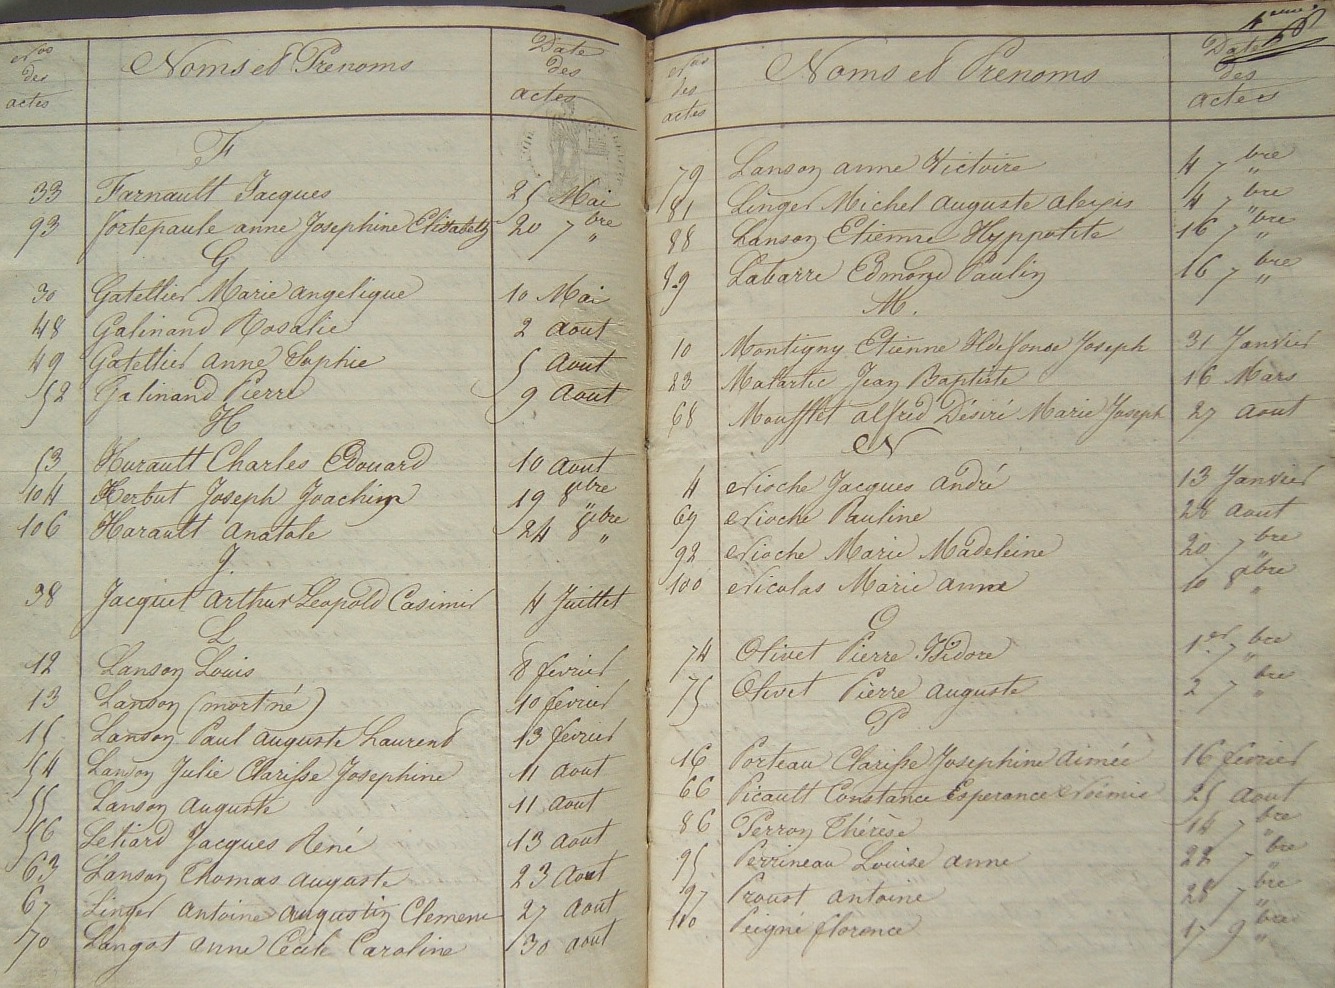 Nos des actes Noms et Prenoms Date des actes
F
33 Farnault Jacques 25 Mai
93 fortepaule anne Josephine Elisabeth 20 7bre
G
30 Gatellier Marie angelique 10 Mai
48 Galinand Rosalie 2 aout
49 Gatellier anne Sophie 5 Aout
52 Galinand Pierre 9 Aout
H
53 Hurault Charles Edouard 10 aout
104 Herbut Joseph Joachim 19 8bre
106 Harault Anatole 24 8bre
J
38 Jacquet Arthur Leopold Casimir 4 Juillet
L
12 Lanson Louis 8 fevrier
13 Lanson (mort né) 10 fevrier
15 Lanson Paul auguste Laurend 13 fevrier
54 Lanson Julie Clarisse Josephine 11 aout
55 Lanson auguste 11 Aout
56 Letiard Jacques René 13 aout
63 Lanson Thomas auguste 23 Aout
67 Linger antoine augustin Clemence 27 aout
70 Langot anne Cécile Caroline 30 aout
Nos des actes Noms et Prenoms Date des actes
79 Lanson anne Victoire 4 7bre
81 Linger Michel auguste aloyse 4 7bre
88 Lanson Etienne Hyppolite 16 7bre
89 Labarre Edmond Paulin 16 7bre
M.
10 Montigny Etienne Ildefonce Joseph 31 Janvier
23 Malartic Jean Baptiste 16 Mars
68 Moufflet alfred Désiré Marie Joseph 27 aout
N
4 Nioche Jacques andré 13 Janvier
69 Nioche Pauline 28 aout
92 Nioche Marie Madeleine 20 7bre
100 Nicolas Marie anne 10 8bre
O
74 Olivet Pierre Isidore 1er 7bre
75 Olivet Pierre auguste 2 7bre
P
16 Porteau Clarisse Josephine Aimée 16 fevrier
66 Picault Constance Esperance Noémie 25 aout
86 Perron Thérèse 14 7bre
95 Perrineau Louise anne 22 7bre
97 Proust antoine 28 7bre
110 Peigné florence 17 9bre